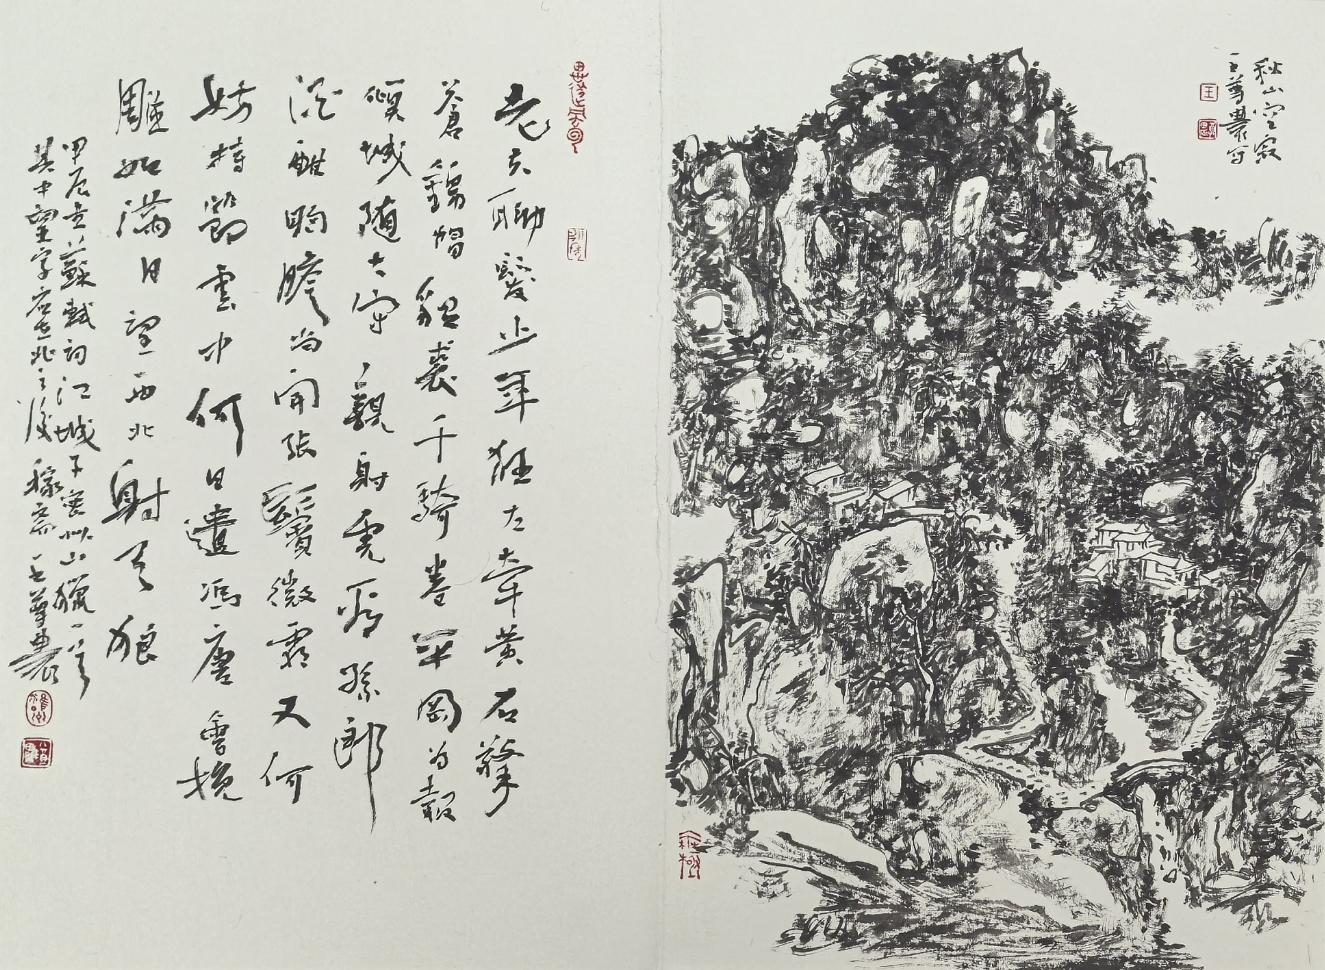 老夫聊發少年狂左牽黃右擎
蒼錦帽貂裘千騎卷平岡為報
傾城隨太守親射虎看孫郎
酒酣胸膽尚開張鬢微霜又何
妨持節雲中何日遣馮唐會挽
雕如滿月望西北射天狼
甲辰書蘇軾詞江城子密州出獵一首
其中望字應在北之後 稼齋王尊農
秋山空寂
王尊農寫